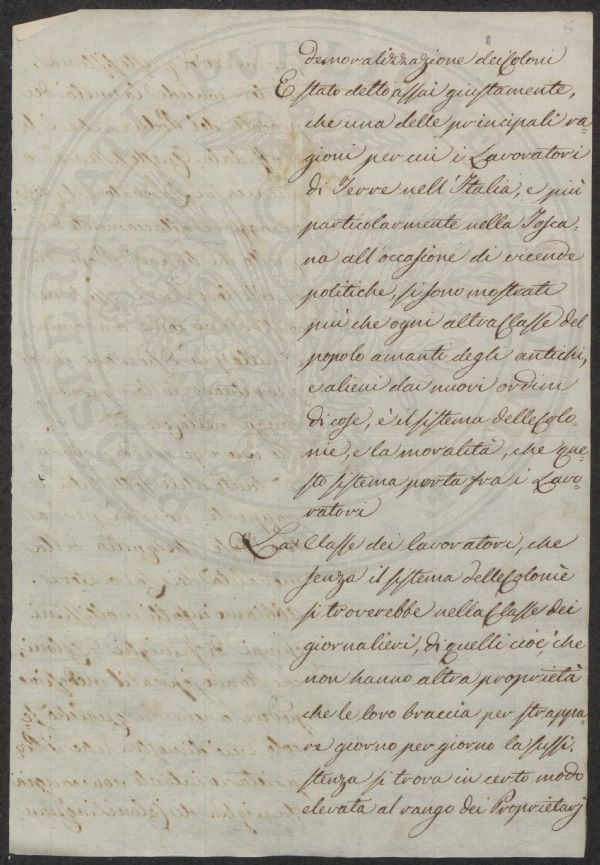 5
demoralizzazione dei Coloni
E stato detto assai giustamente,
che una delle principali ra-
gioni per cui i Lavoratori
di Terre nell'Italia, e più
particolarmente nella Tosca-
na all'occasione di vicende
politiche, si sono mostrati
più che ogni altra Classe del
popolo amanti degli antichi,
e alieni dai nuovi ordini
di cose, è il sistema delle Colo-
nie, e la moralità, che que-
sto sistema porta fra i Lavo-
ratori
La Classe dei lavoratori, che
senza il sistema delle Colonie
si troverebbe nella Classe dei
giornalieri, di quelli cioè, che
non hanno altra proprietà
che le loro braccia per strappa-
re giorno per giorno la sussi-
stenza si trova in certo modo
elevata al rango dei Proprietarj